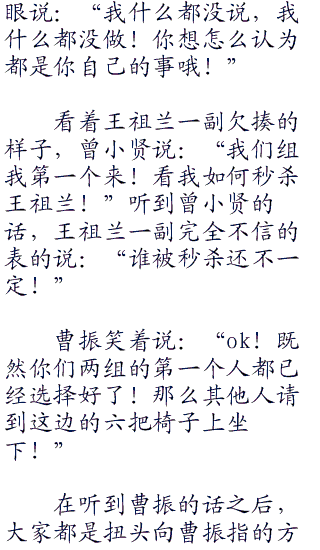 眼说：“我什么都没说，我
什么都没做！你想怎么认为
都是你自己的事哦！”
看着王祖兰一副欠揍的
样子，曾小贤说：“我们组
我第一个来！看我如何秒杀
王祖兰！”听到曾小贤的
话，王祖兰一副完全不信的
表的说：“谁被秒杀还不一
定！”
曹振笑着说：“ok！既
然你们两组的第一个人都已
经选择好了！那么其他人请
到这边的六把椅子上坐
下！”
在听到曹振的话之后，
大家都是扭头向曹振指的方